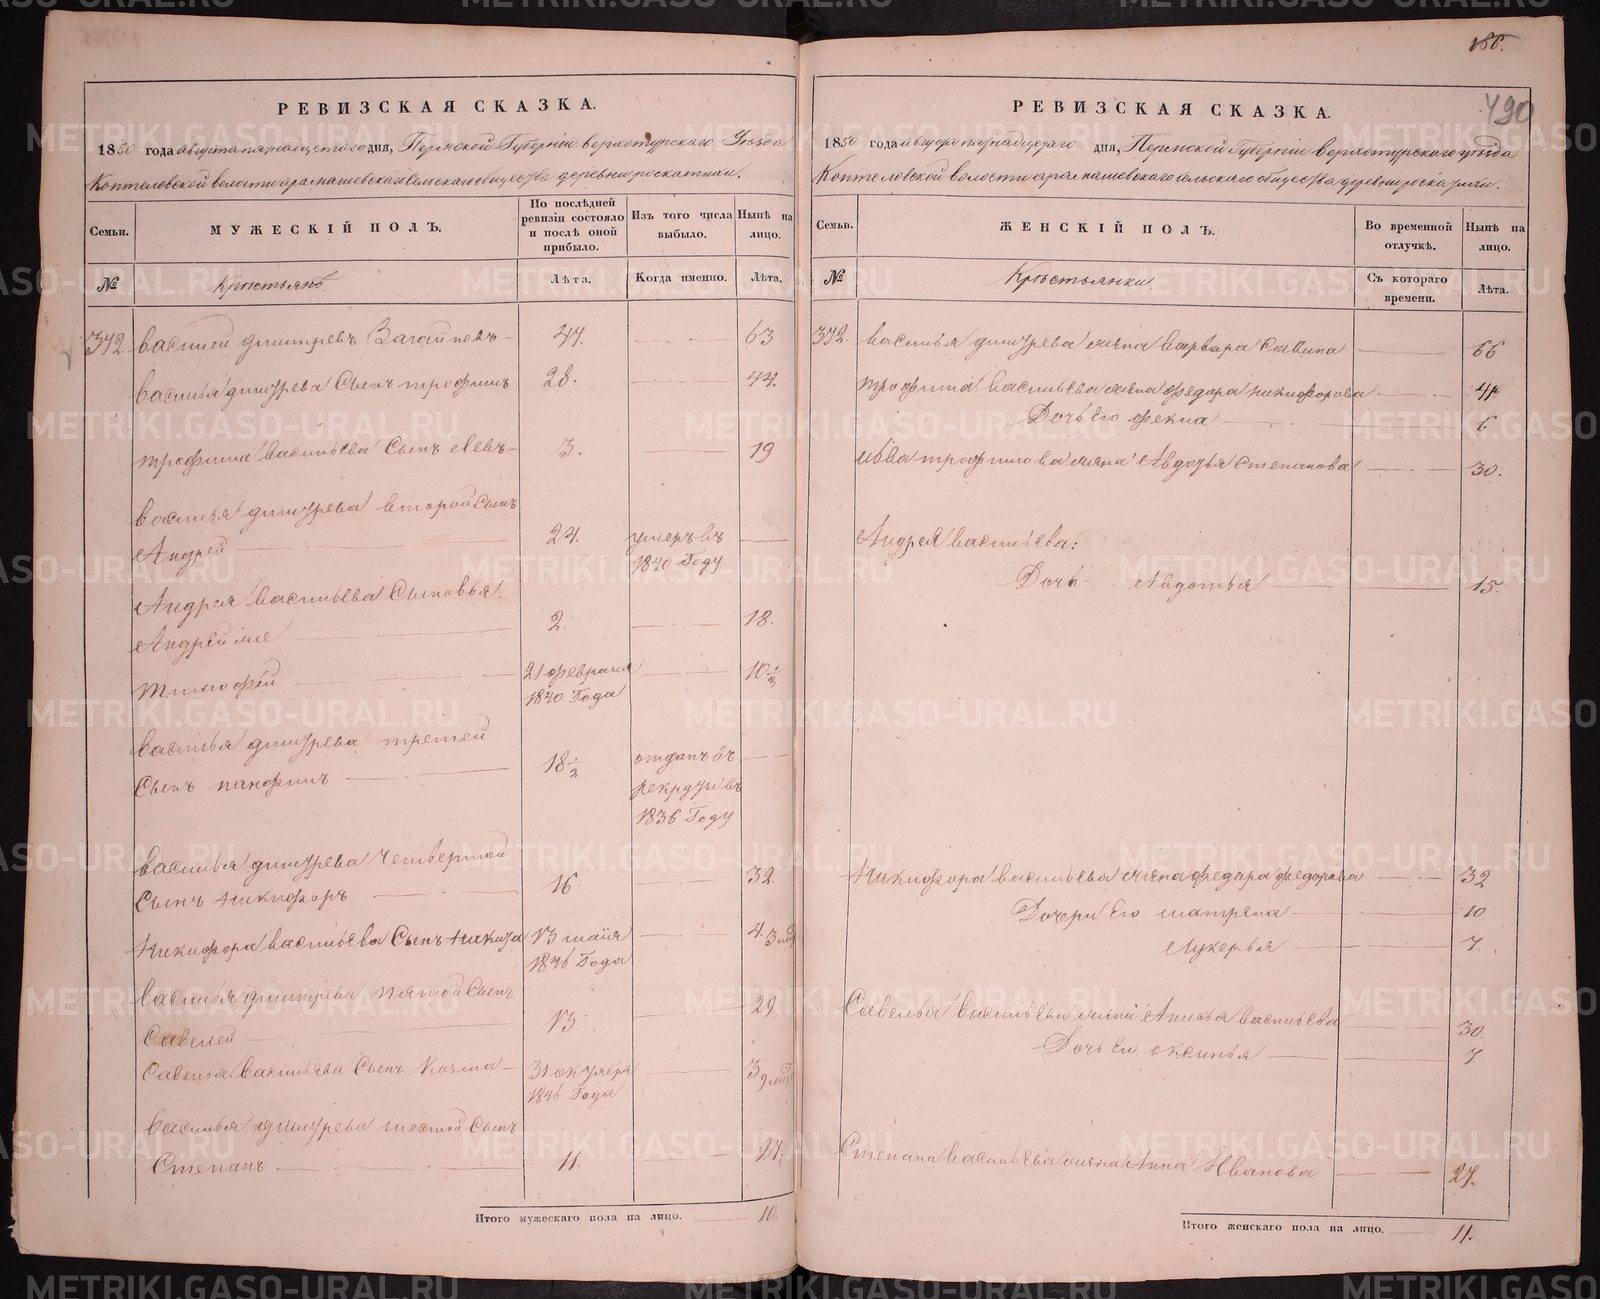 РЕВИЗСКАЯ СКАЗКА.
1850 года августа пятнадцатого дня, Пермской Губерніи верхотурского Уезда
Коптеловской волости арамашевского сельского общества деревни роскатихи.
Семьи. МУЖЕСКІЙ ПОЛЪ. По послѣдней ревизіи состояло и послѣ оной прибыло. Изъ того числа выбыло. Нынѣ на лицо.
№ Крестьянъ Лѣта. Когда именно. Лѣта.
372. василей дмитревъ Загайновъ 47. 63
василья дмитрева Сынъ трофимъ 28. 44.
трофима васильева Сынъ Левъ 3. 19
василья дмитрева второй Сынъ
Андрей 24. умеръ въ
1840 Году
Андрея васильева Сыновья.
Андреймѣ 2. 18.
тимофей 21 февраля 10 1/2
1840 Года
василья дмитрева третей
Сынъ панфилъ 18 1/2 отданъ въ
рекруты въ
1836 Году
василья дмитрева четвертой
Сынъ никифоръ 16. 32.
Никифора васильева Сынъ Никита 13 маія 4. 3 мѣс
1846 Года
василья дмитрева пятой Сынъ 29
Савелей 13
Савелья васильева Сынъ Козма 31 октября 3 9 мѣс
1846 Года
василья дмитрева шестой Сынъ
Степанъ 11. 27.
Итого мужескаго пола на лицо. 10.
188.
490
РЕВИЗСКАЯ СКАЗКА.
1850 года августа пятнадцатого дня, Пермской Губерніи верхотурского уезда
Коптеловской волости арамашевского сельского общества деревни роскатихи.
Семьи. ЖЕНСКІЙ ПОЛЪ. Во временной отлучкѣ. Нынѣ на лицо.
№ Крестьянки Съ котораго времени. Лѣта.
372. василья дмитрева жена варвара Савина 66
трофима васильева жена федора никифорова 41
Дочь его фекла 6
Льва трофимова жена Авдотья Степанова 30.
Андрея васильева:
Дочь Авдотья 15.
Никифора васильева жена федора федорова 32
Дочери его матрена 10
Лукерья 7.
Савелья васильева жена Анисья васильева 30.
Дочь его оксинья 7
Степана васильева жена Анна Иванова 27.
Итого женскаго пола на лицо. 11.
METRIKI.GASO-URAL.RU